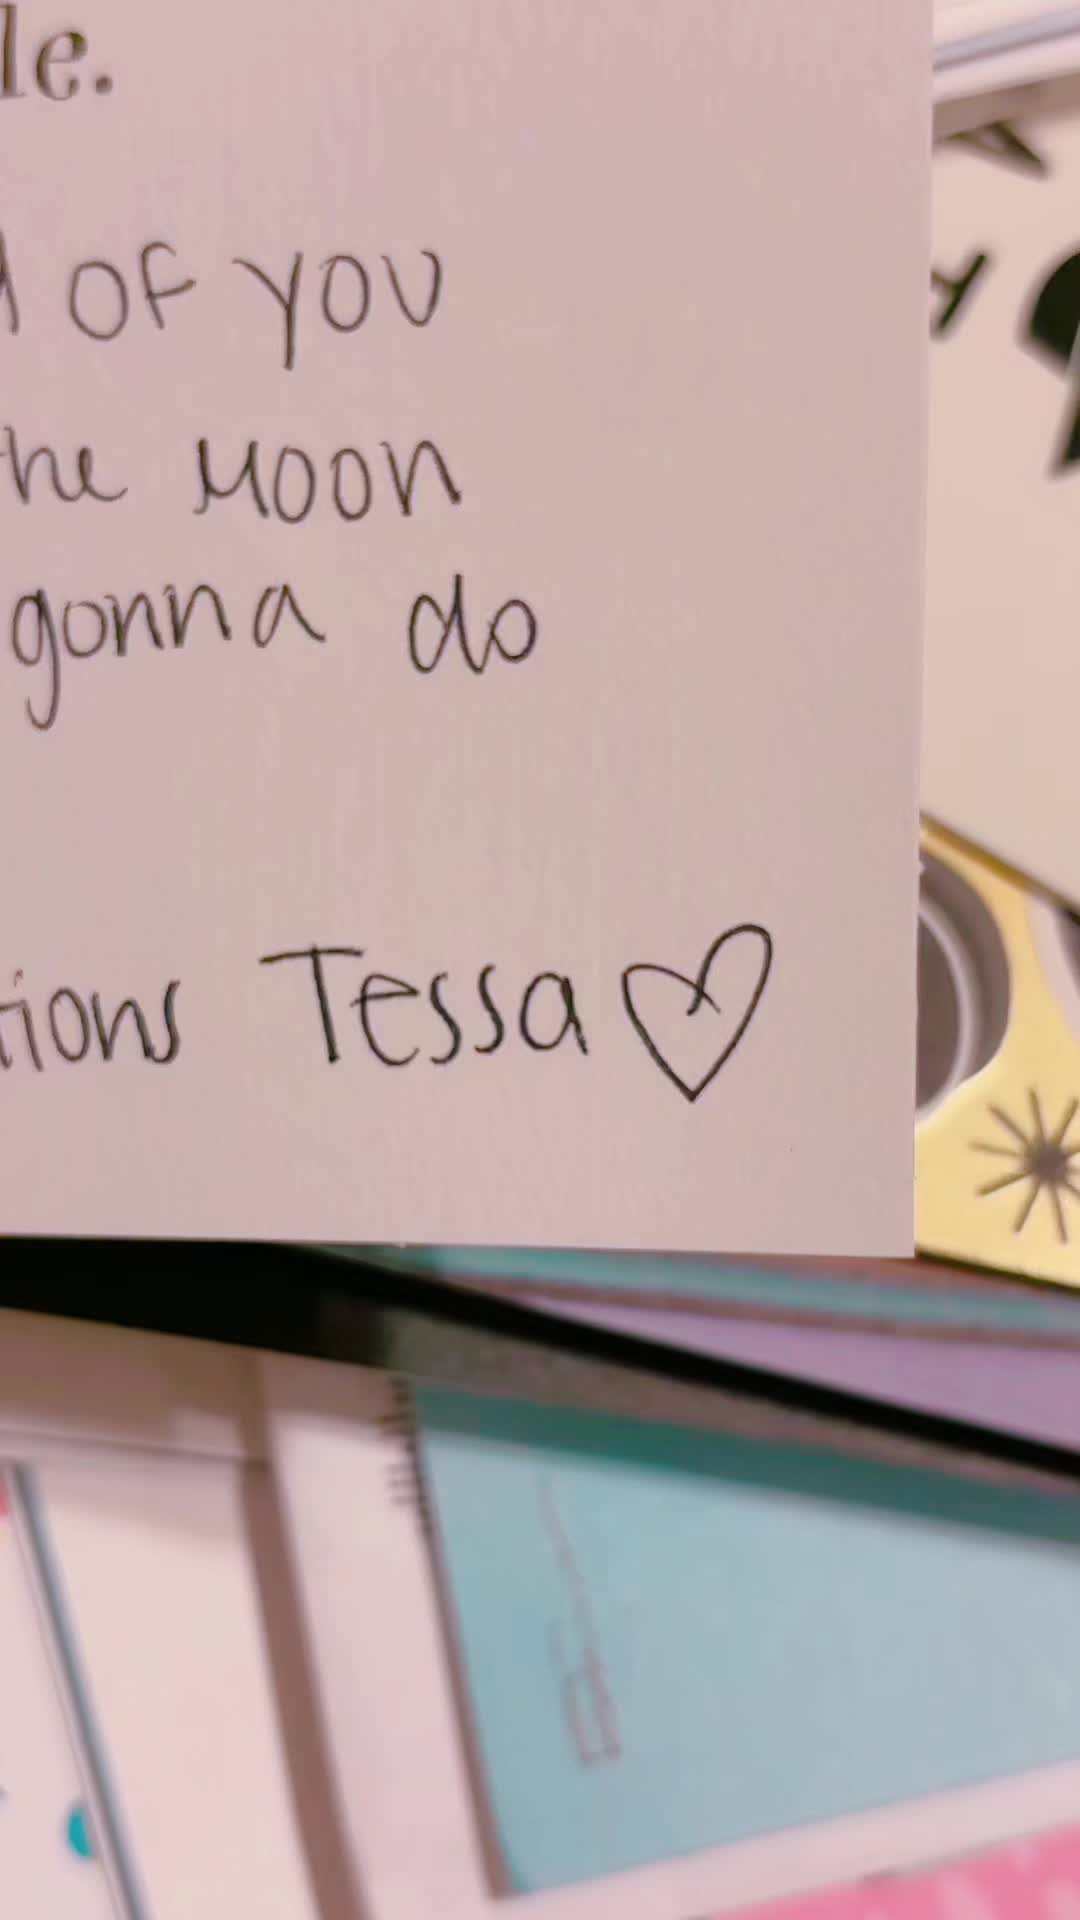 le.
of you
he moon
gonna do
tions Tessa